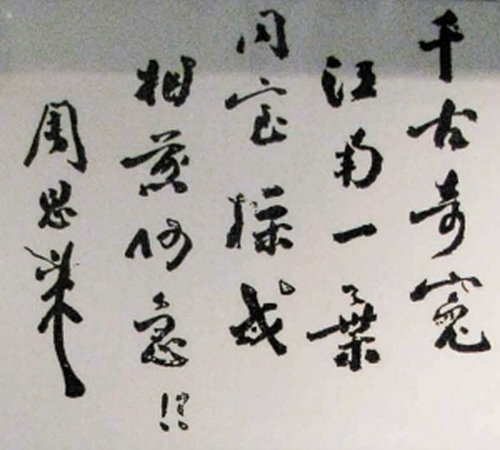 千古奇冤
江南一葉
同室操戈
相煎何急!!
周恩来